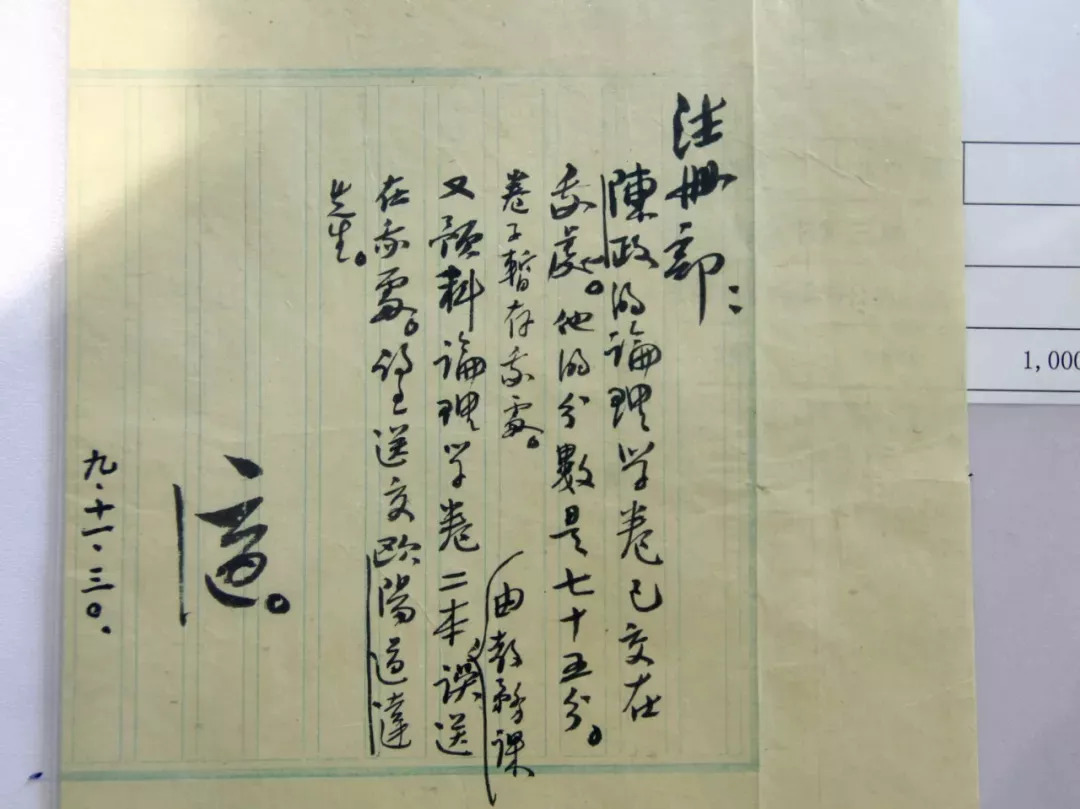 注册部：
陳政的論理學卷已交在
我處。他的分數是七十五分。
卷子暫存我處。
又預科論理學卷二本，誤送
由教務課
在我處。乞送交歐陽道達
先生。
適。
九．十一．三〇．
1,000